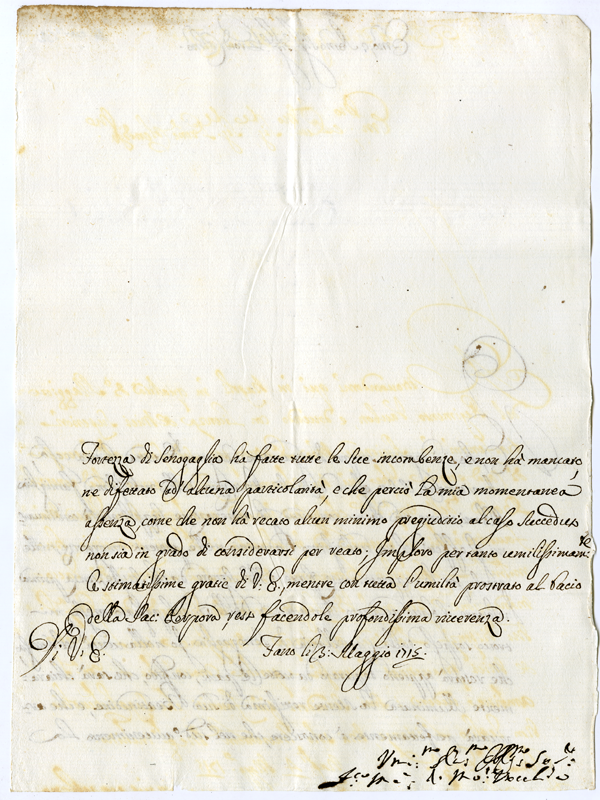 Fortezza di Senogaglia hà fatte tutte le sue incombenze, e non hà mancato,
ne difettato ad alcuna particolarità, e che perciò la mia momentanea
assenza, come che non hà recato alcun minimo pregiuditio al caso succeduto
non sia in grado di considerarsi per reato; Imploro per tanto umilissimam:te
le stimatissime gratie di V: E:, mentre con tutta l'umiltà prostrato al bacio
della Sac: Porpora resto facendole profondissima riverenza.
Di V: E: Fano li 3: Maggio 1715:
Vmi:mo